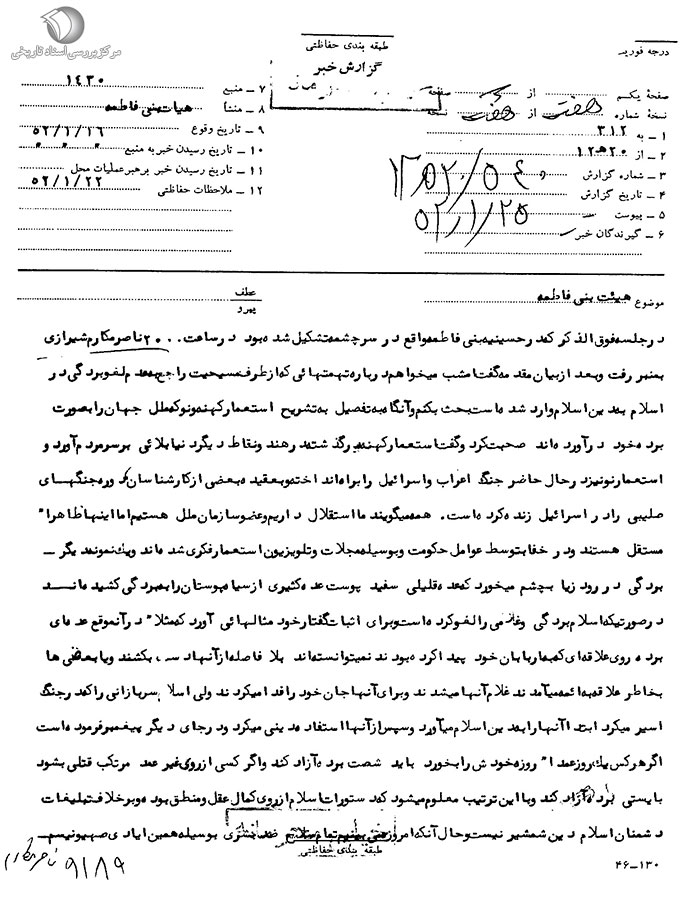 مرکز بررسی اسناد تاریخی
طبقه بندی حفاظتی
درجه فوریت
گزارش خبر
صفحهٔ یکم از صفحه
نسخهٔ شماره هفت از هفت نسخه
۱ – به ۳۱۲
۲ – از ۲۰ ه ۱۲
۳ – شماره گزارش
۴ – تاریخ گزارش ۵۲/۱/۲۵
۵ – پیوست
۶ – گیرندگان خبر
۷ – منبع ۱۴۳۰
۸ – منشأ هیات بنی فاطمه
۹ – تاریخ وقوع ۵۲/۱/۱۶
۱۰ – تاریخ رسیدن خبر به منبع
۱۱ – تاریخ رسیدن خبر برهبر عملیات محل ۵۲/۱/۲۲
۱۲ – ملاحظات حفاظتی
موضوع هیئت بنی فاطمه
عطف
پیرو
درجلسه فوق الذکر که در حسینیه بنی فاطمه واقع در سرچشمه تشکیل شده بود در ساعت ۲۰۰۰ ناصر مکارم شیرازی
بمنبر رفت و بعد از بیان مقدمه گفت امشب میخواهم درباره تهمتهائی که از طرف مسیحیت راجع بعدم لغو بردگی در
اسلام بدین اسلام وارد شده است بحث بکنم و آنگاه به تفصیل به تشریح استعمار کهنه و نو که ملل جهان را بصورت
برده خود درآورده اند صحبت کرد و گفت استعمار کهنه در گذشته در هند و نقاط دیگر دنیا بلائی برسر مردم آورد و
استعمار نو نیز درحال حاضر جنگ اعراب و اسرائیل را براه انداخته و بعقیده بعضی از کارشناسان دوره جنگهای
صلیبی را در اسرائیل زنده کرده است. همه میگویند ما استقلال داریم و عضو سازمان ملل هستیم اما اینها ظاهراً
مستقل هستند و در خفا بتوسط عوامل حکومت و بوسیله مجلات و تلویزیون استعمار فکری شده اند و یک نمونه دیگر –
بردگی در رودزیا بچشم میخورد که عده قلیلی سفید پوست عده کثیری از سیاه پوستان را به بردگی کشیده اند
درصورتیکه اسلام بردگی و غلامی را لغو کرده است و برای اثبات گفتار خود مثالهائی آورد که مثلاً در آنموقع عده ای
برده روی علاقه ای که به اربابان خود پیدا کرده بودند نمیتوانسته اند بلافاصله از آنها دست بکشند و یا بعضی ها
بخاطر علاقه به ائمه میآمدند غلام آنها میشدند و برای آنها جان خود را فدا میکردند ولی اسلام سربازانی را که در جنگ
اسیر میکرد ابتدا آنها را بدین اسلام میآورد و سپس از آنها استفاده دینی میکرد و در جای دیگر پیغمبر فرموده است
اگر هرکس یک روز عمداً روزه خودش را بخورد باید شصت برده آزاد کند و اگر کسی از روی غیر عمد مرتکب قتلی بشود
بایستی برده آزاد کند و با این ترتیب معلوم میشود که دستورات اسلام از روی کمال عقل و منطق بوده و برخلاف تبلیغات
دشمنان اسلام دین شمشیر نیست و حال آنکه امروز بوسیله همین ایادی صهیونیسم –
طبقه بندی حفاظتی
۴۶–۱۳۰
۹۱۸۹